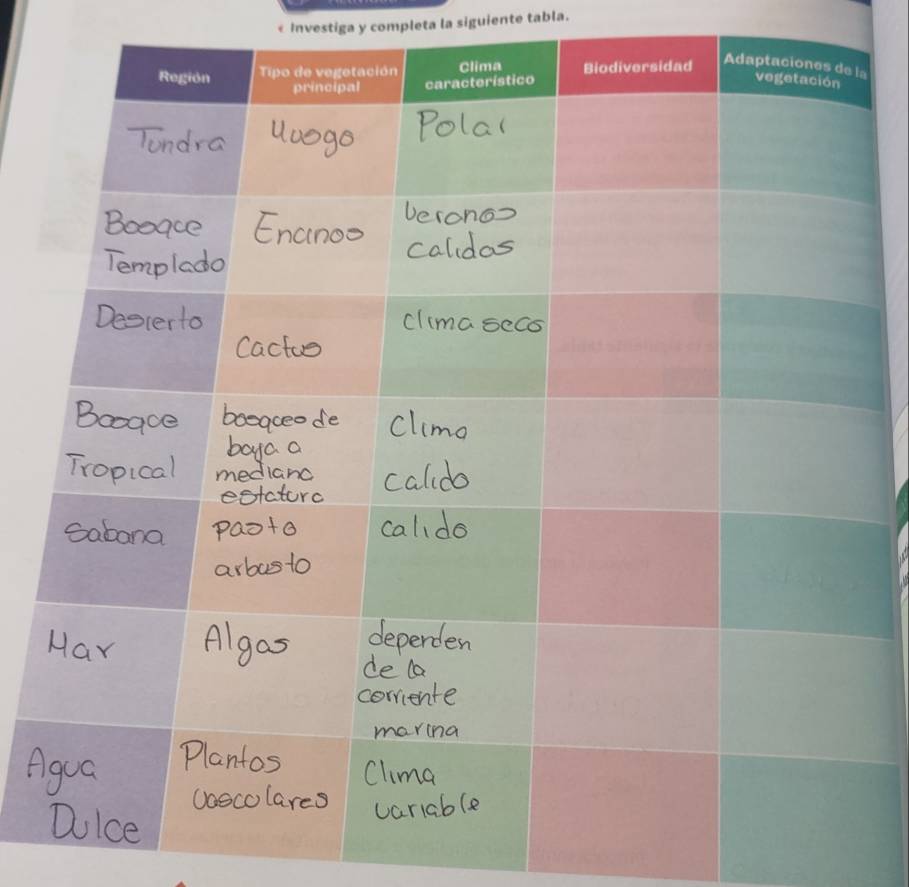 Investiga y completa la siguiente tabla.
Región
Tipo de vegetación principal
Clima característico
Biodiversidad
Adaptaciones de la vegetación
Tundra
Musgo
Polar
Bosque
Templado
Encinos
beronos
calidos
Desierto
Cactus
clima seco
Bosque
Tropical
bosques de
baja a
mediana
estatura
Clima
calido
sabana
pasto
arbusto
calido
Mar
Algas
dependen
de la
corriente
marina
Agua
Dulce
Plantas
vasculares
Clima
variable